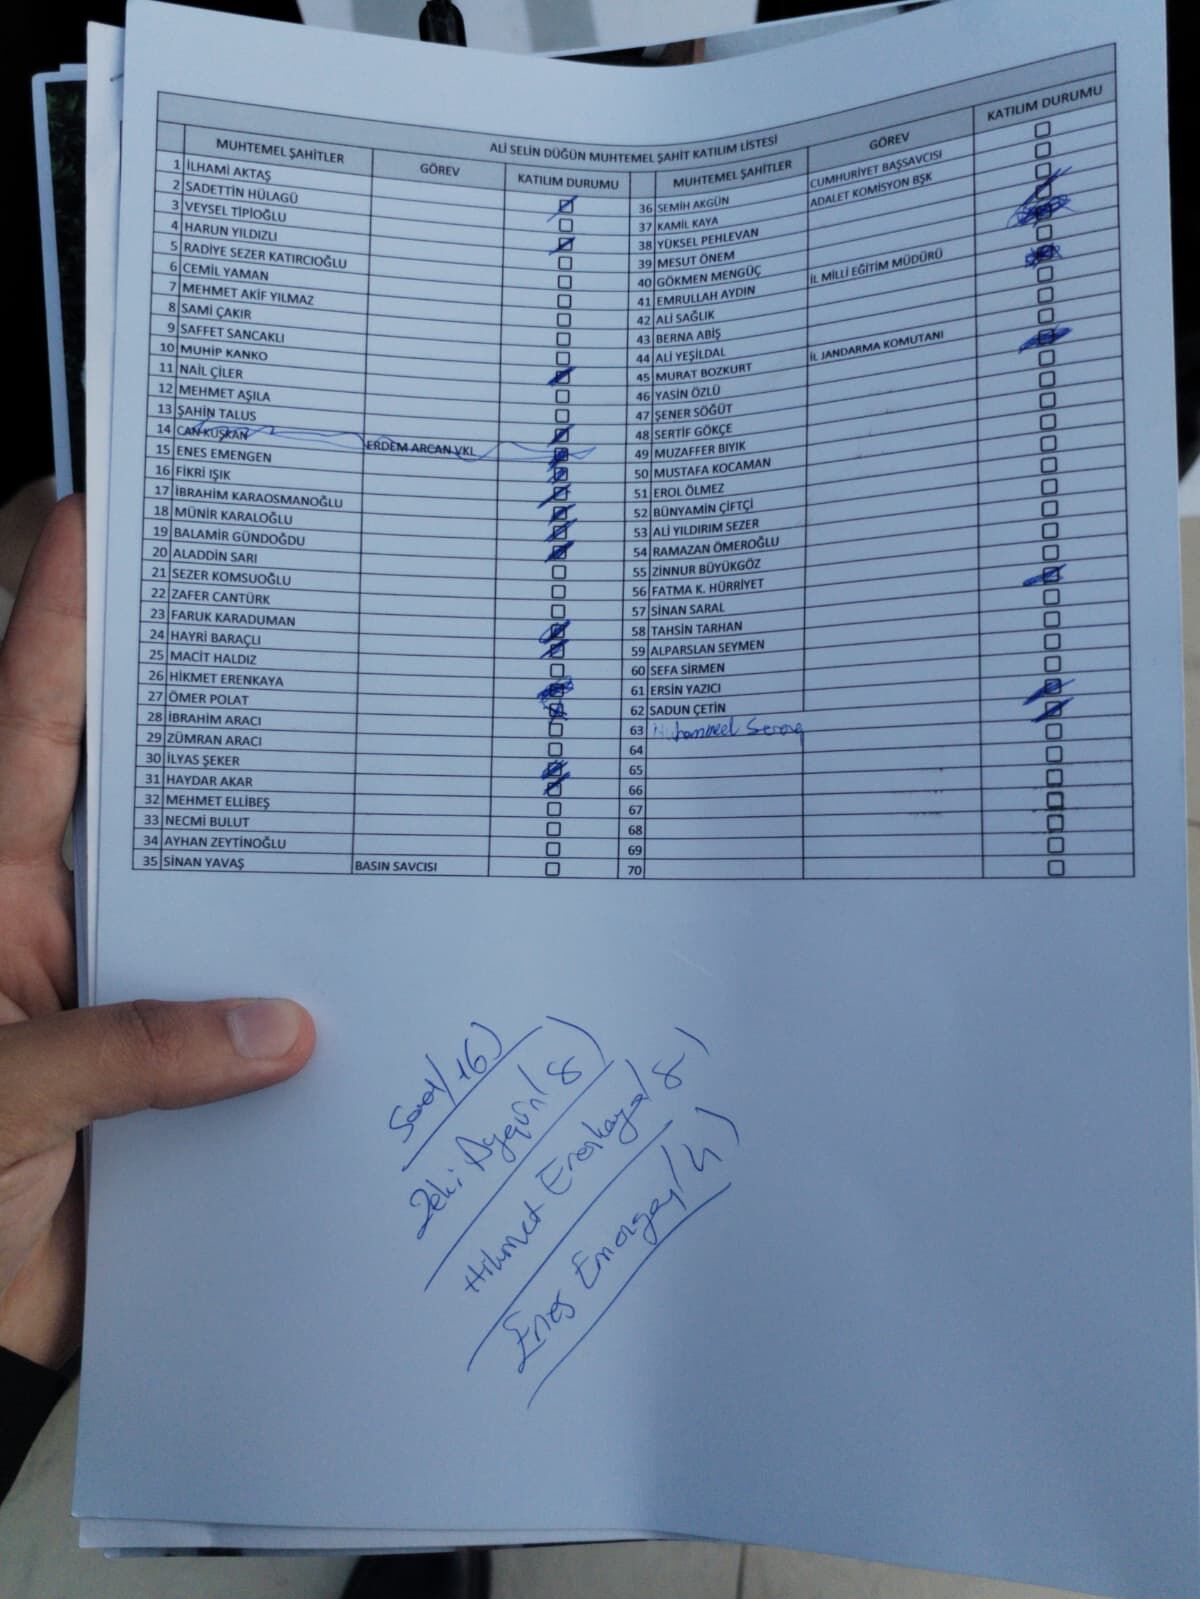 ALİ SELİN DÜĞÜN MUHTEMEL ŞAHİT KATILIM LİSTESİ
MUHTEMEL ŞAHİTLER GÖREV KATILIM DURUMU
1 İLHAMİ AKTAŞ
2 SADETTİN HÜLAGÜ
3 VEYSEL TİPİOĞLU
4 HARUN YILDIZLI
5 RADİYE SEZER KATIRCIOĞLU
6 CEMİL YAMAN
7 MEHMET AKİF YILMAZ
8 SAMİ ÇAKIR
9 SAFFET SANCAKLI
10 MUHİP KANKO
11 NAİL ÇİLER
12 MEHMET AŞILA
13 ŞAHİN TALUS
14 CAN KUŞKAN ERDEM ARCAN VKL
15 ENES EMENGEN
16 FİKRİ IŞIK
17 İBRAHİM KARAOSMANOĞLU
18 MÜNİR KARALOĞLU
19 BALAMİR GÜNDOĞDU
20 ALADDİN SARI
21 SEZER KOMSUOĞLU
22 ZAFER CANTÜRK
23 FARUK KARADUMAN
24 HAYRİ BARAÇLI
25 MACİT HALDIZ
26 HİKMET ERENKAYA
27 ÖMER POLAT
28 İBRAHİM ARACI
29 ZÜMRAN ARACI
30 İLYAS ŞEKER
31 HAYDAR AKAR
32 MEHMET ELLİBEŞ
33 NECMİ BULUT
34 AYHAN ZEYTİNOĞLU
35 SİNAN YAVAŞ BASIN SAVCISI
MUHTEMEL ŞAHİTLER GÖREV KATILIM DURUMU
36 SEMİH AKGÜN CUMHURİYET BAŞSAVCISI
37 KAMİL KAYA ADALET KOMİSYON BŞK
38 YÜKSEL PEHLEVAN
39 MESUT ÖNEM
40 GÖKMEN MENGÜÇ
41 EMRULLAH AYDIN İL MİLLİ EĞİTİM MÜDÜRÜ
42 ALİ SAĞLIK
43 BERNA ABİŞ
44 ALİ YEŞİLDAL
45 MURAT BOZKURT İL JANDARMA KOMUTANI
46 YASİN ÖZLÜ
47 ŞENER SÖĞÜT
48 SERTİF GÖKÇE
49 MUZAFFER BIYIK
50 MUSTAFA KOCAMAN
51 EROL ÖLMEZ
52 BÜNYAMİN ÇİFTÇİ
53 ALİ YILDIRIM SEZER
54 RAMAZAN ÖMEROĞLU
55 ZİNNUR BÜYÜKGÖZ
56 FATMA K. HÜRRİYET
57 SİNAN SARAL
58 TAHSİN TARHAN
59 ALPARSLAN SEYMEN
60 SEFA SİRMEN
61 ERSİN YAZICI
62 SADUN ÇETİN
63 Muhammed
64
65
66
67
68
69
70
/16)
Zeki Aygün/8)
Hikmet Erenkaya/8)
Enes /4)